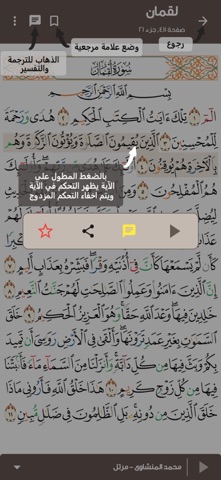 لقمان
صفحة ٤١١، جزء ٢١
رجوع
وضع علامة مرجعية
الذهاب للترجمة والتفسير
سورة لقمان
بسم الله الرحمن الرحيم
الٓمٓ ١ تِلْكَ ءَايَٰتُ ٱلْكِتَٰبِ ٱلْحَكِيمِ ٢ هُدًى وَرَحْمَةً
لِّلْمُحْسِنِينَ ٣ ٱلَّذِينَ يُقِيمُونَ ٱلصَّلَوٰةَ وَيُؤْتُونَ ٱلزَّكَوٰةَ وَهُم
بِٱلْءَاخِرَةِ هُمْ يُوقِنُونَ ٤
هُمُ ٱلْمُفْلِحُونَ ٥
بالضغط المطول على
الآية يظهر التحكم في الآية
ويتم اخفاء التحكم المزدوج
كَأَن لَّمْ يَسْمَعْهَا كَأَنَّ فِىٓ أُذُنَيْهِ وَقْرًا فَبَشِّرْهُ بِعَذَابٍ أَلِيمٍ ٧
إِنَّ ٱلَّذِينَ ءَامَنُوا۟ وَعَمِلُوا۟ ٱلصَّٰلِحَٰتِ لَهُمْ جَنَّٰتُ ٱلنَّعِيمِ ٨
خَٰلِدِينَ فِيهَا وَعْدَ ٱللَّهِ حَقًّا وَهُوَ ٱلْعَزِيزُ ٱلْحَكِيمُ ٩ خَلَقَ
ٱلسَّمَٰوَٰتِ بِغَيْرِ عَمَدٍ تَرَوْنَهَا وَأَلْقَىٰ فِى ٱلْأَرْضِ رَوَٰسِىَ أَن تَمِيدَ
بِكُمْ وَبَثَّ فِيهَا مِن كُلِّ دَآبَّةٍ وَأَنزَلْنَا مِنَ ٱلسَّمَآءِ مَآءً فَأَنۢبَتْنَا
فِيهَا مِن كُلِّ زَوْجٍ كَرِيمٍ ١٠ هَٰذَا خَلْقُ ٱللَّهِ فَأَرُونِى مَاذَا
خَلَقَ ٱلَّذِينَ مِن دُونِهِۦ بَلِ ٱلظَّٰلِمُونَ فِى ضَلَٰلٍ مُّبِينٍ ١١
محمد المنشاوي - مرتل